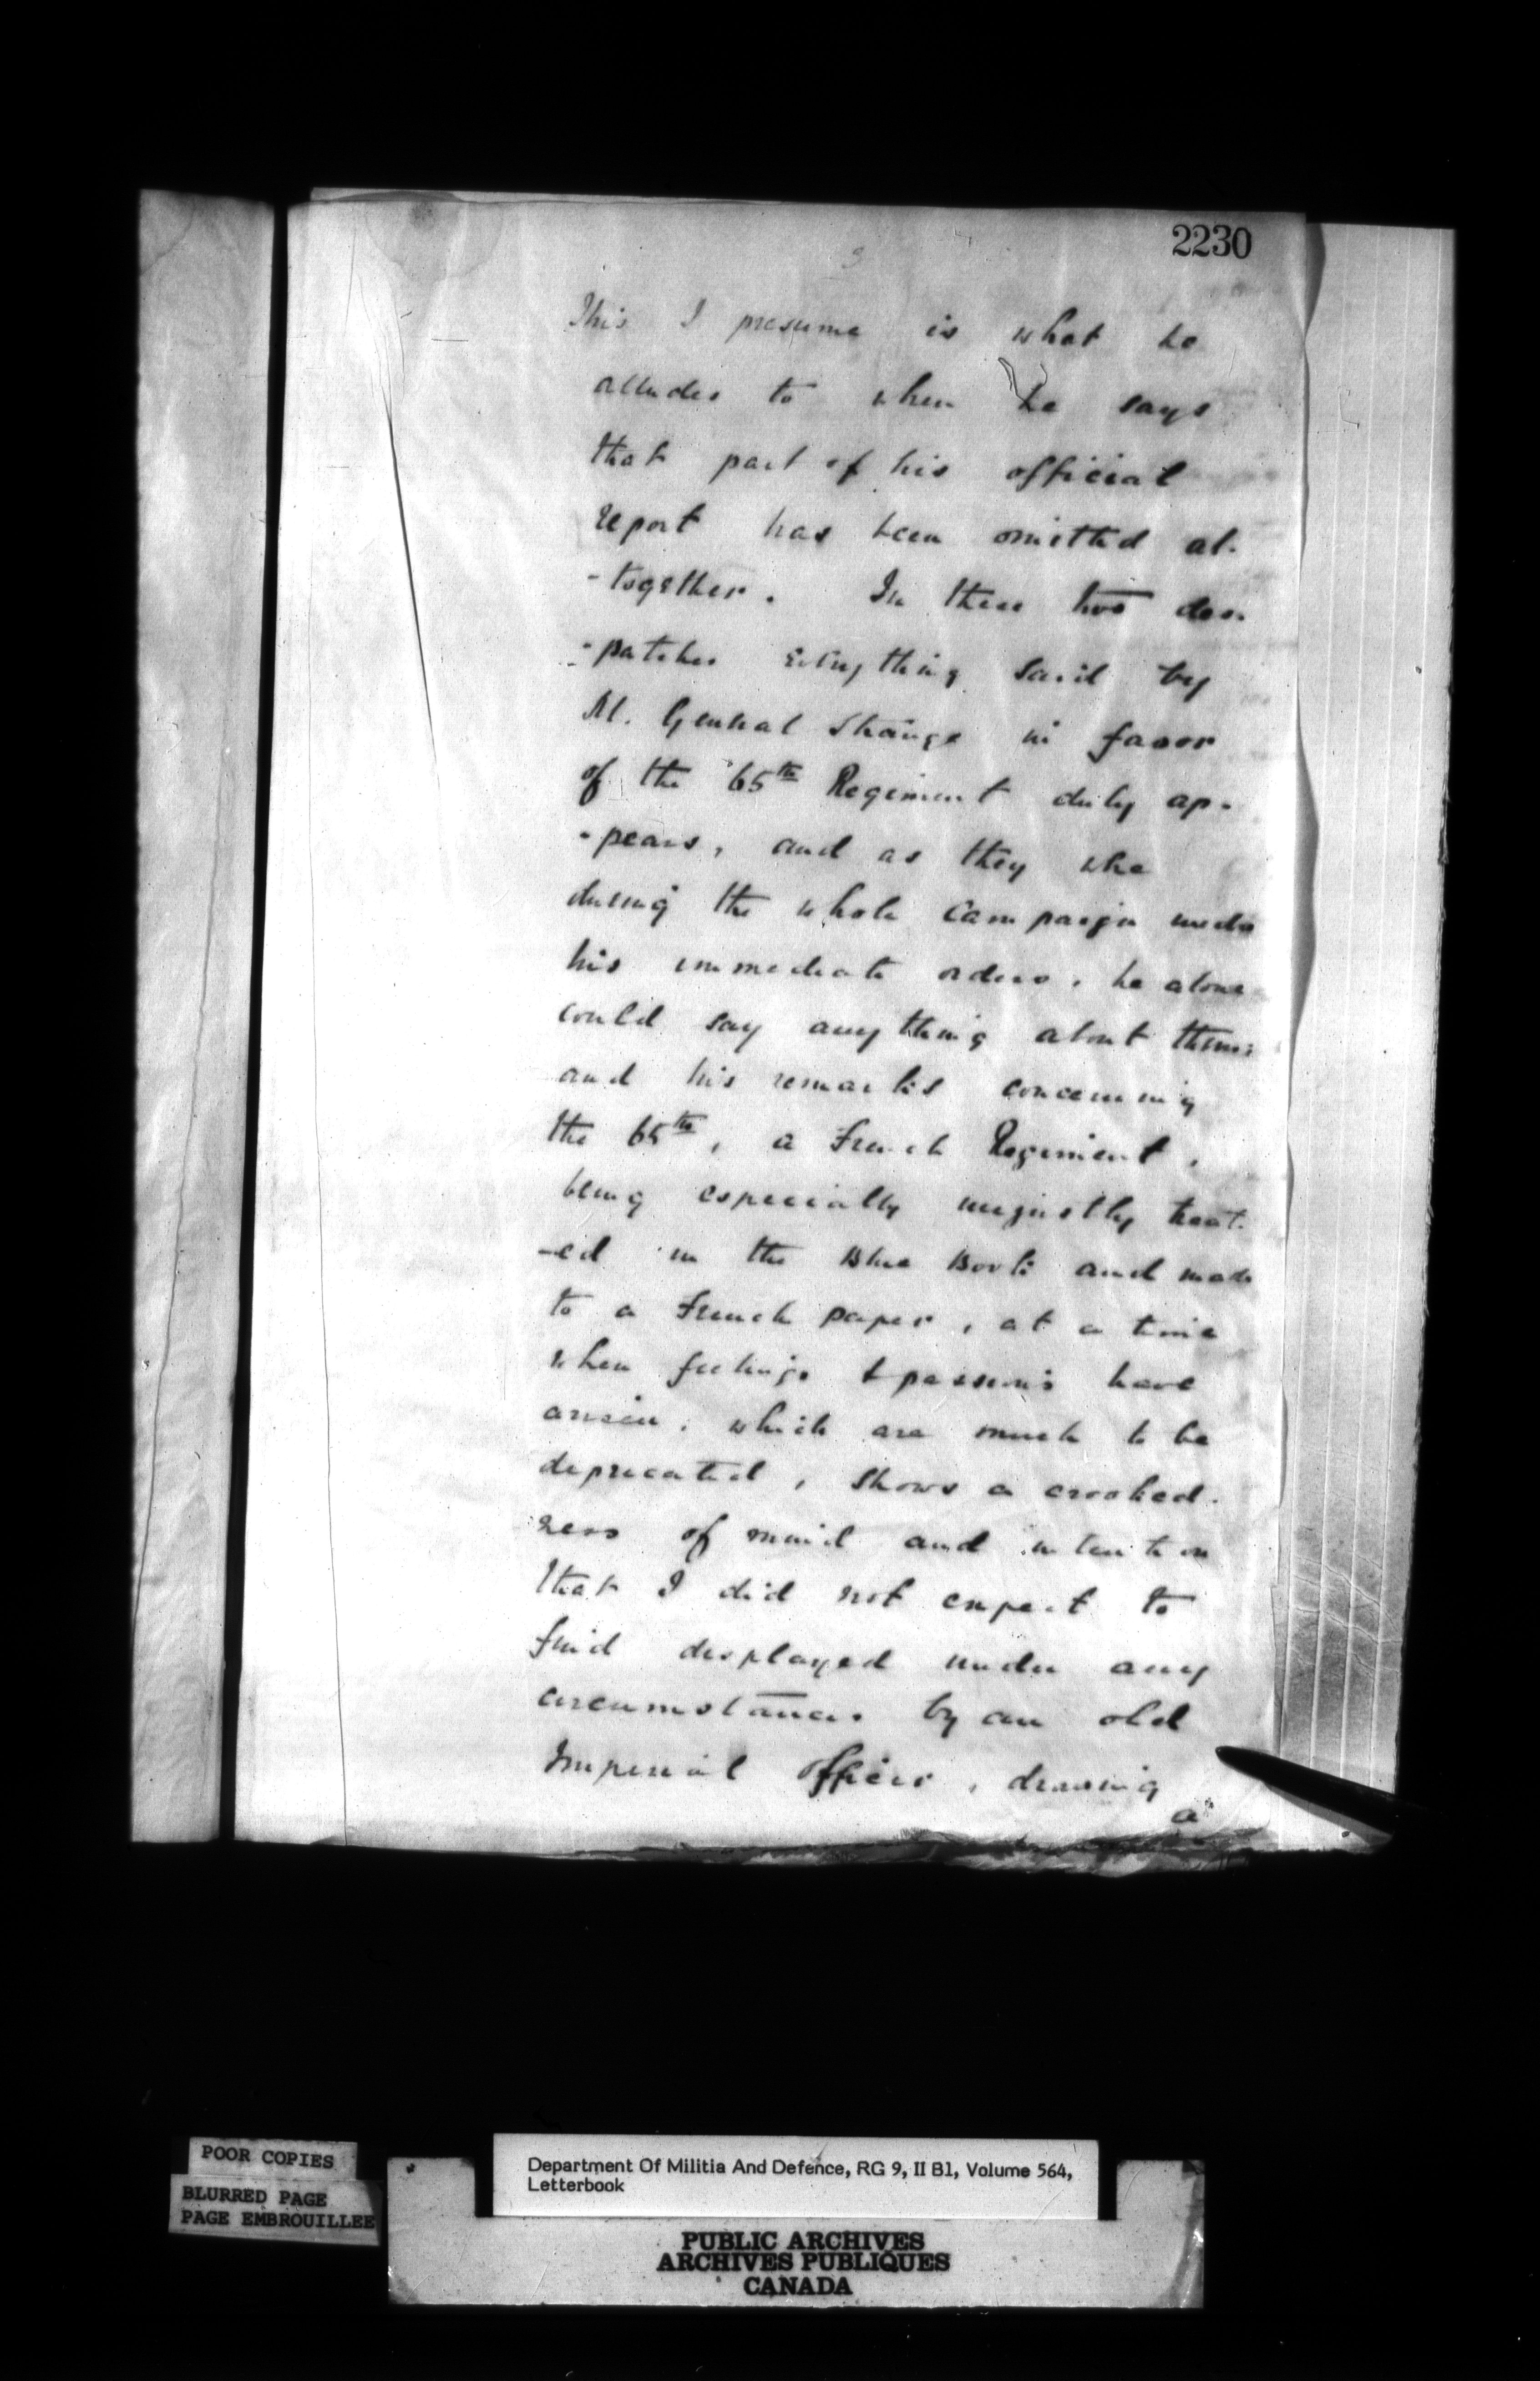 2230
3
This I presume is what he
alludes to when he says
that part of his official
report has been omitted al-
-together. In these two des-
-patches everything said by
M. General Strange in favor
of the 65th Regiment duly ap-
-pears, and as they were
during the whole campaign under
his immediate orders, he alone
could say anything about them;
and his remarks concerning
the 65th, a French Regiment,
being especially unjustly treat-
-ed in the Blue Book and made
to a French paper, at a time
when feelings & passions have
arisen, which are much to be
deprecated, shows a crooked-
ness of mind and intention
that I did not expect to
find displayed under any
circumstances by an old
Imperial officer, drawing
a
POOR COPIES
BLURRED PAGE
PAGE EMBROUILLEE
Department Of Militia And Defence, RG 9, II B1, Volume 564,
Letterbook
PUBLIC ARCHIVES
ARCHIVES PUBLIQUES
CANADA